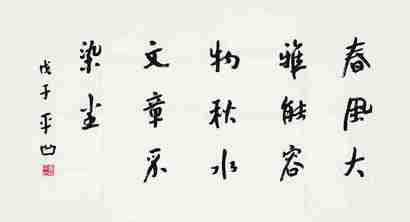 春風大
雅能容
物秋水
文章不
染尘
戊子平凹